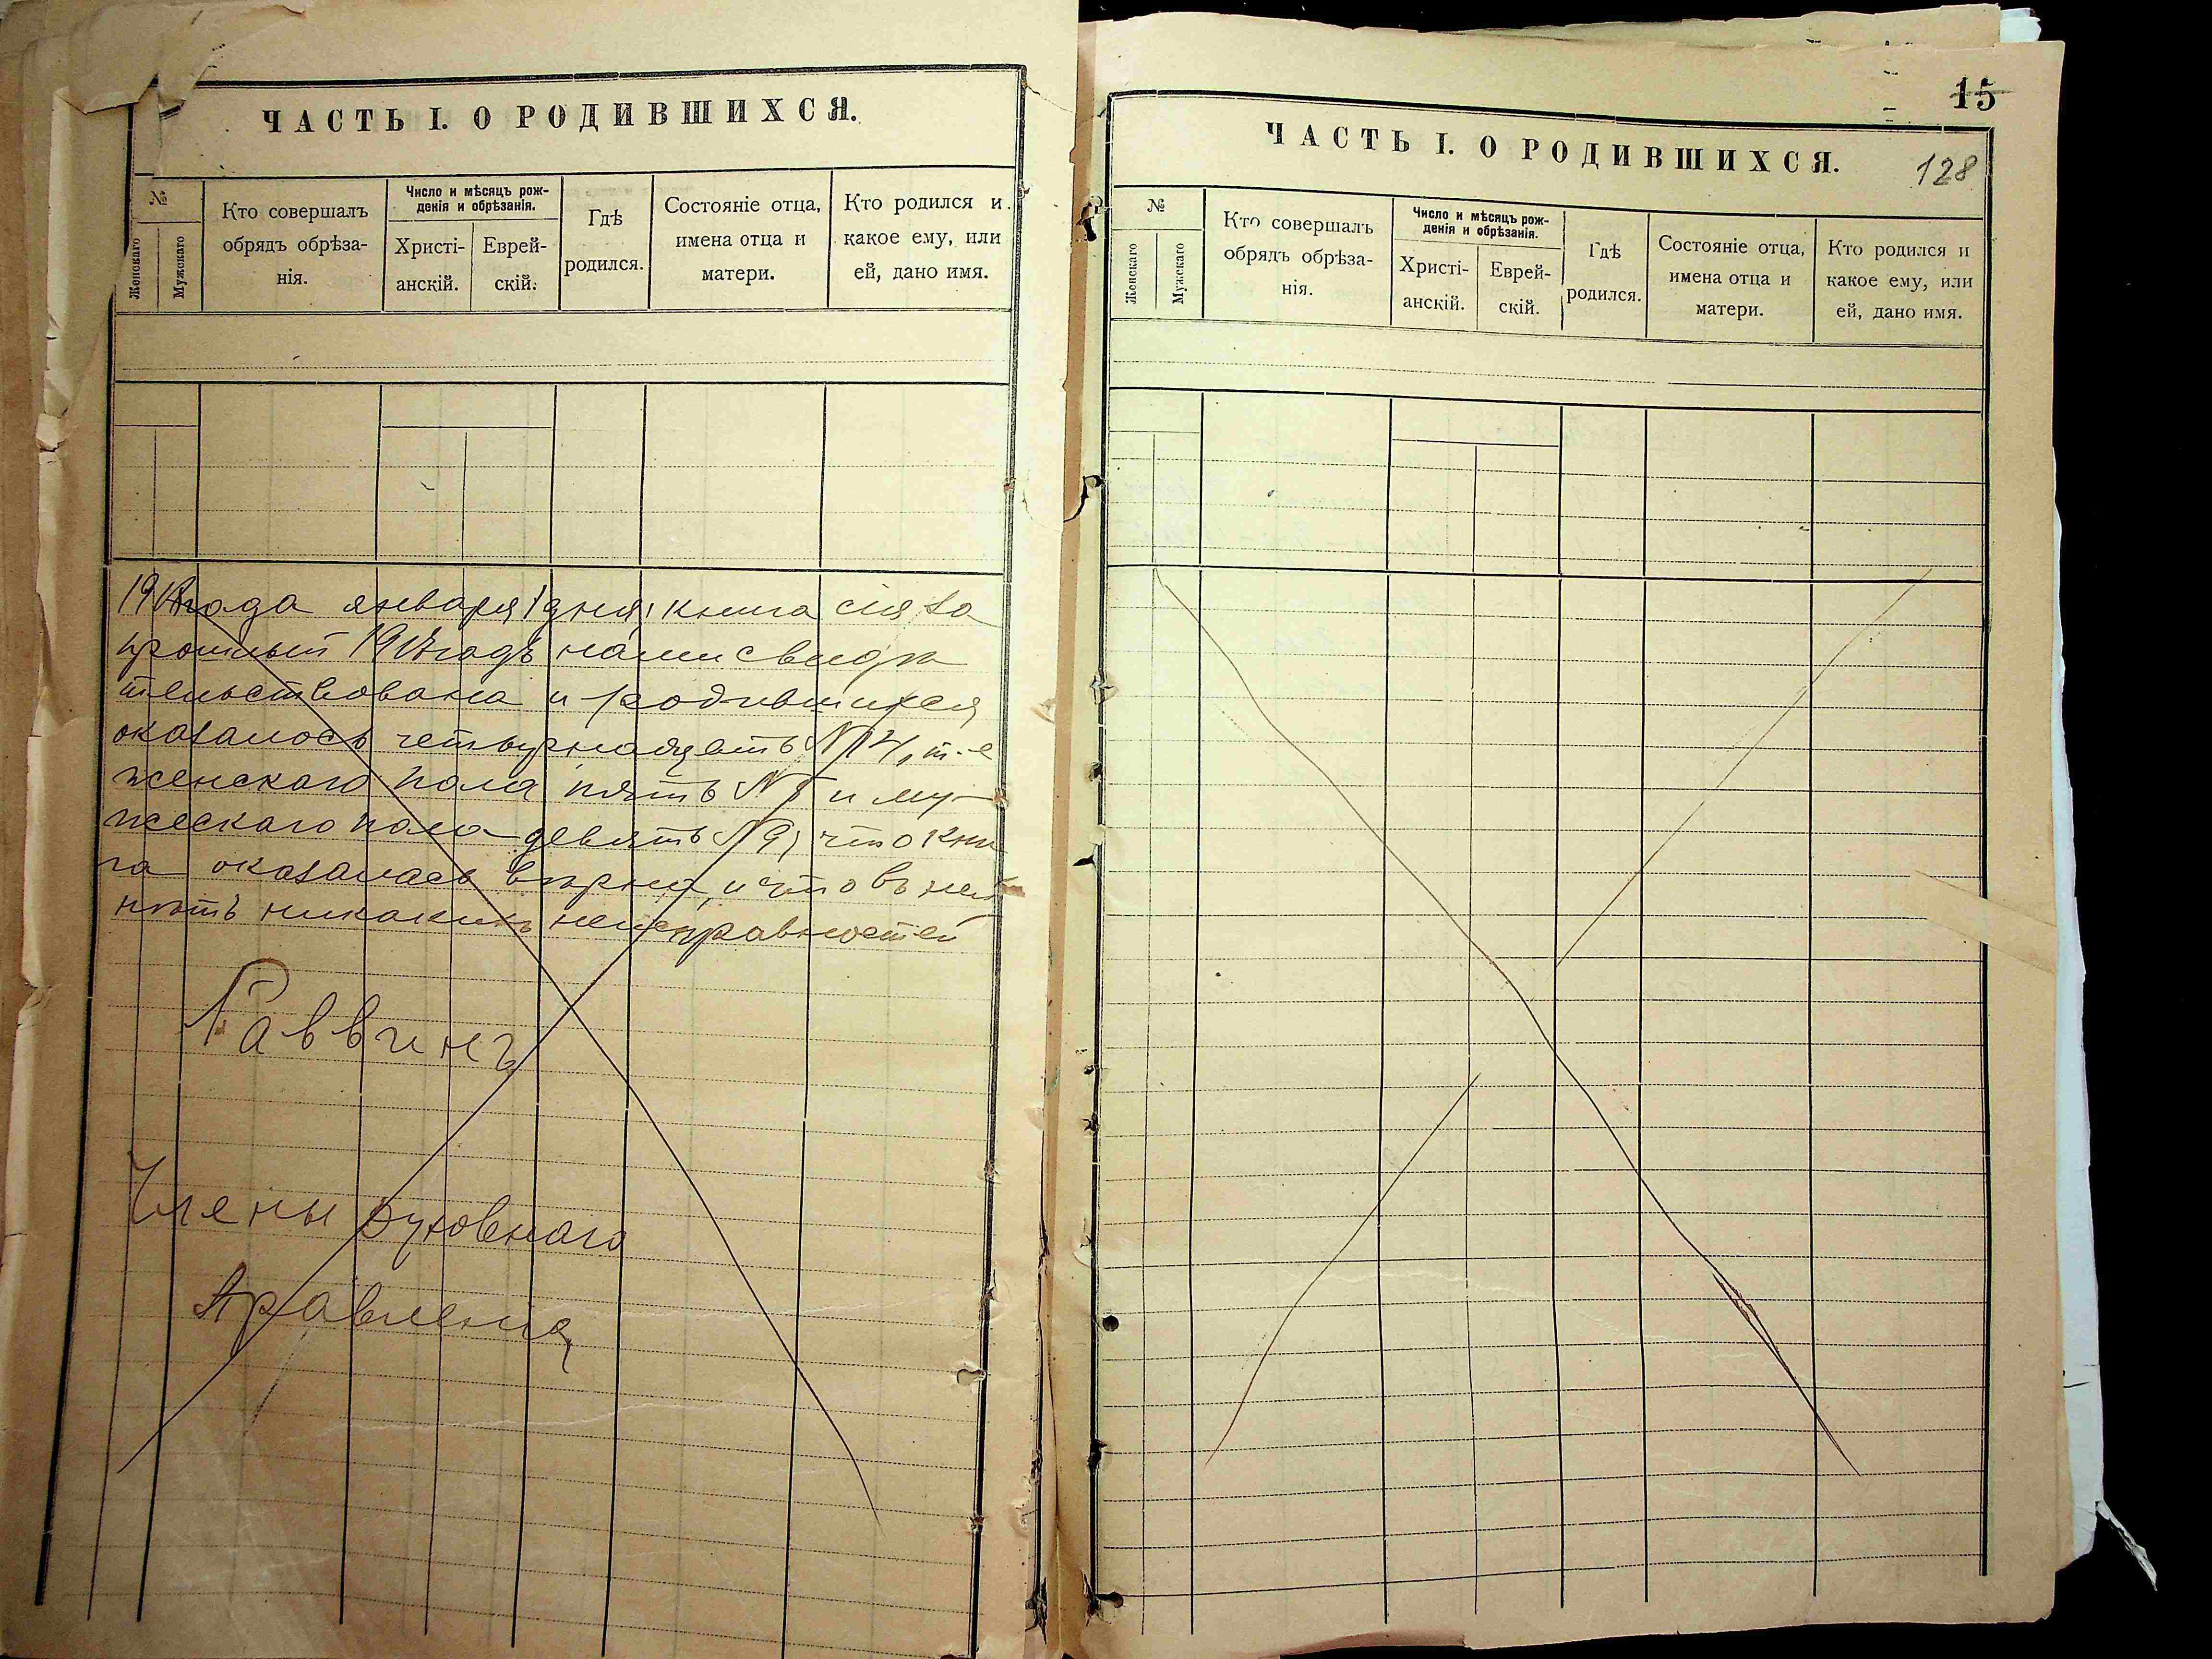 ЧАСТЬ I. О РОДИВШИХСЯ.
№
Женскаго
Мужскаго
Кто совершалъ
обрядъ обрѣза-
нія.
Число и мѣсяцъ рож-
денія и обрѣзанія.
Христі-
анскій.
Еврей-
скій.
Гдѣ
родился.
Состояніе отца,
имена отца и
матери.
Кто родился и
какое ему, или
ей, дано имя.
года января 1 дня, книга сія за
прошлый годъ нами свидѣ
тельствована и родившихся
оказалось четырнадцать №14, т.е
женскаго пола пять №5 и му-
жескаго пола девять №9, что кни
га оказалась вѣрна, и что въ ней
нѣтъ никакихъ неисправностей
Раввинъ
Члены Духовнаго
Правленія
15
ЧАСТЬ I. О РОДИВШИХСЯ.
128
№
Женскаго
Мужскаго
Кто совершалъ
обрядъ обрѣза-
нія.
Число и мѣсяцъ рож-
денія и обрѣзанія.
Христі-
анскій.
Еврей-
скій.
Гдѣ
родился.
Состояніе отца,
имена отца и
матери.
Кто родился и
какое ему, или
ей, дано имя.